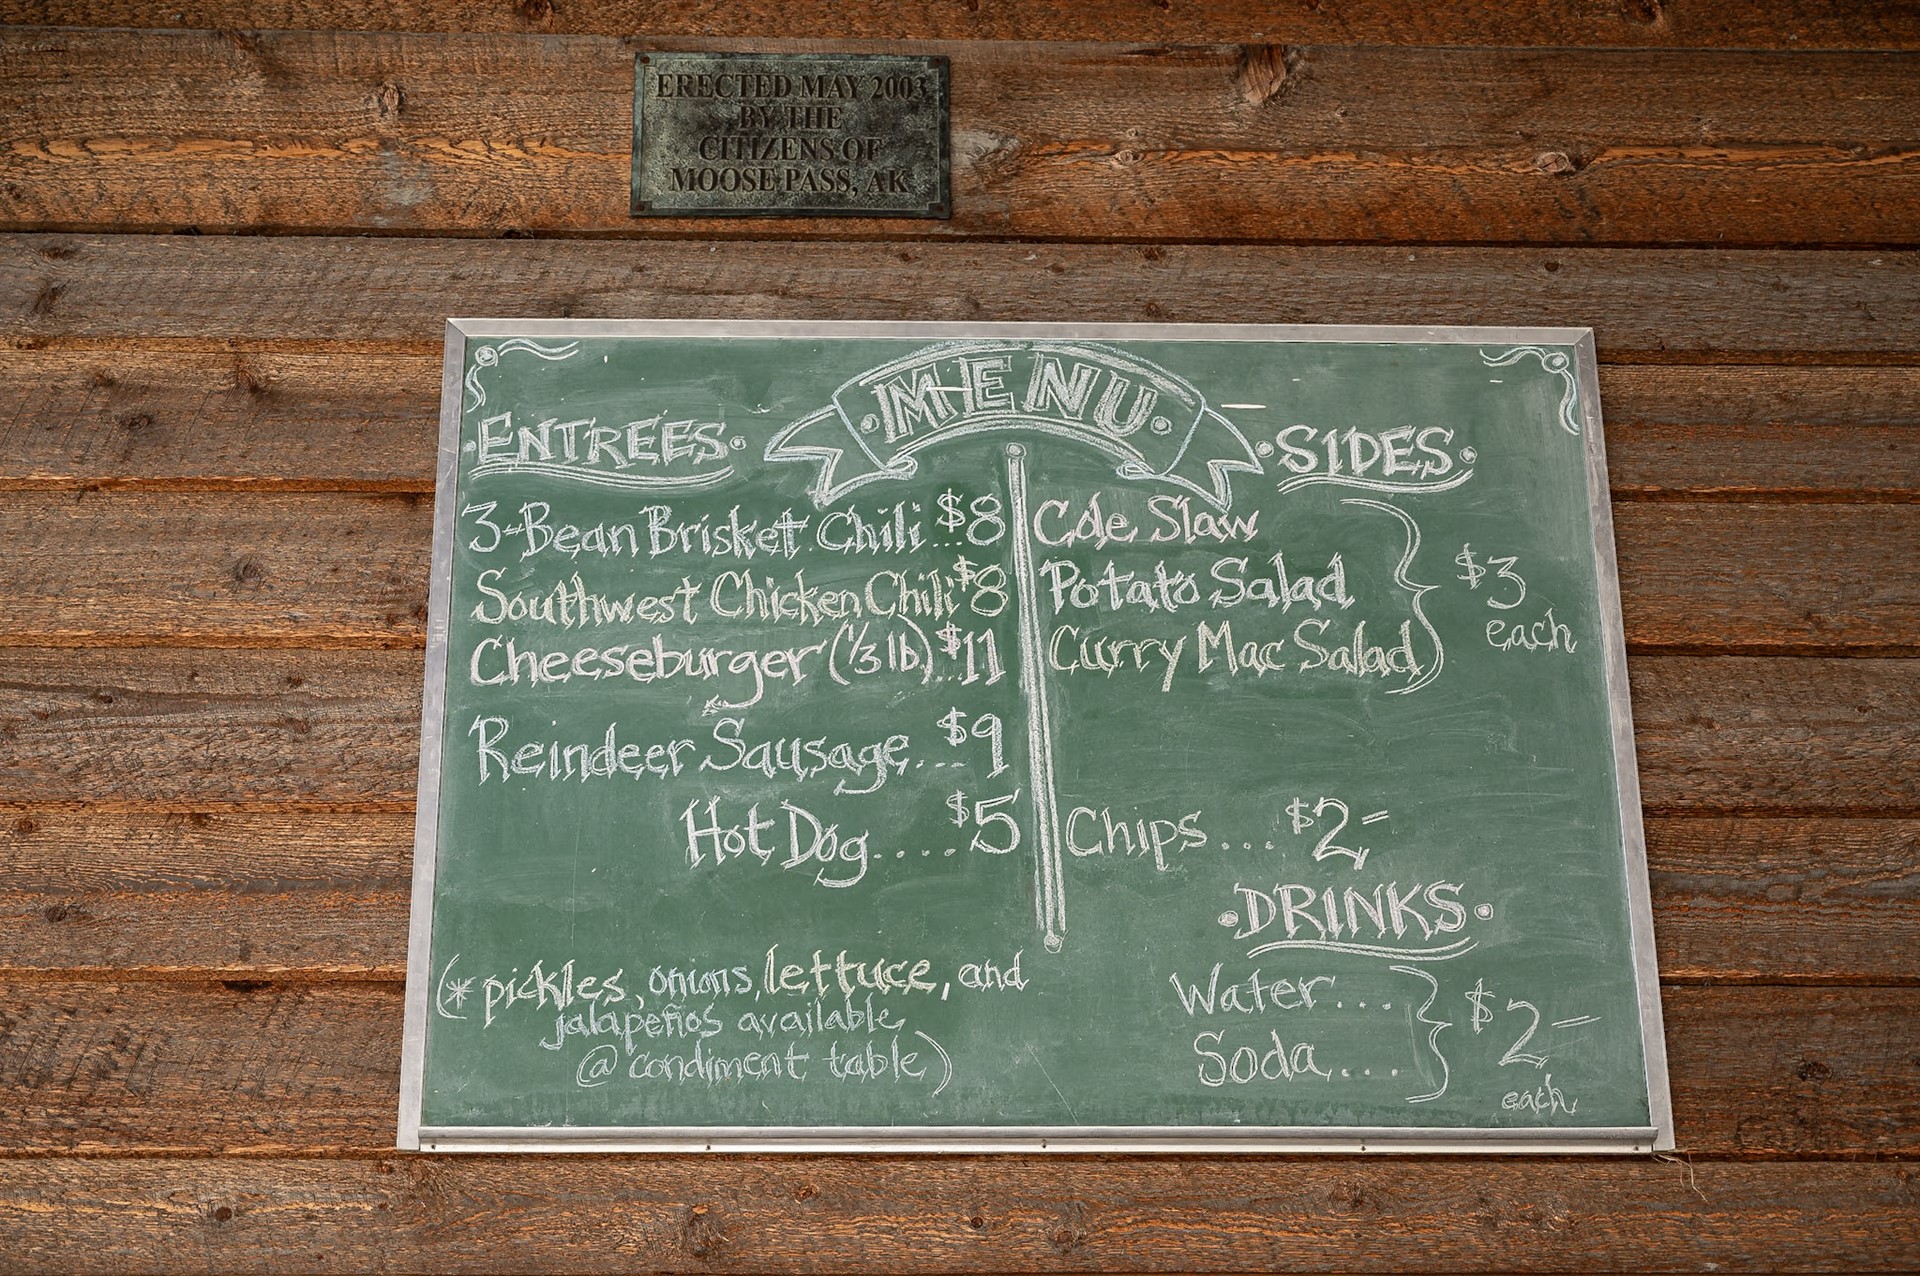 ERECTED MAY 2003
BY THE
CITIZENS OF
MOOSE PASS, AK
MENU
ENTREES
3-Bean Brisket Chili $8
Southwest Chicken Chili $8
Cheeseburger (1/3 lb)... $11
Reindeer Sausage... $9
Hot Dog..... $5
SIDES
Cole Slaw
Potato Salad
Curry Mac Salad
$3
each
Chips... $2-
DRINKS
Water...
Soda...
$2-
each
(* pickles, onions, lettuce, and
jalapeños available
@ condiment table)